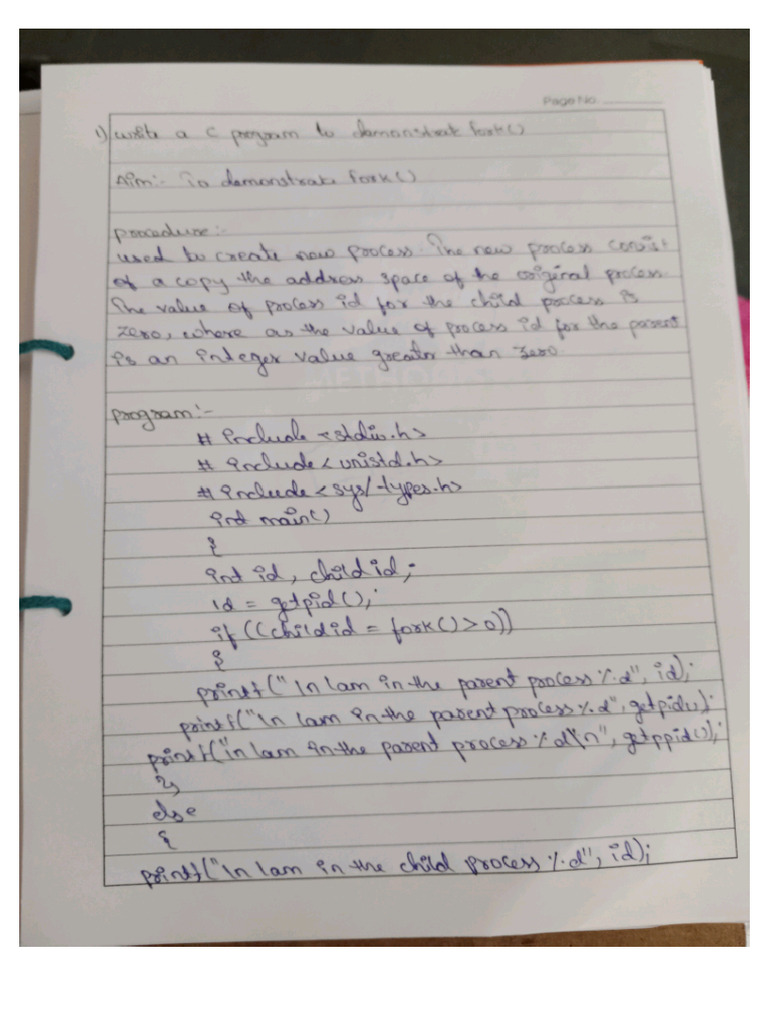 Page No.
1) write a C program to demonstrate fork()
Aim:- To demonstrate fork()
procedure:-
used to create new process. The new process consist
of a copy the address space of the original process.
The value of process id for the child process is
zero, where as the value of process id for the parent
is an integer value greater than zero.
program:-
# include <stdio.h>
# include < unistd.h>
# include < sys/types.h>
int main()
{
int id, childid;
id = getpid();
if ((childid = fork() > 0))
{
printf("\n I am in the parent process %d", id);
printf("\n I am in the parent process %d", getpid());
printf("\n I am in the parent process %d\n", getppid());
}
else
{
printf("\n I am in the child process %d", id);